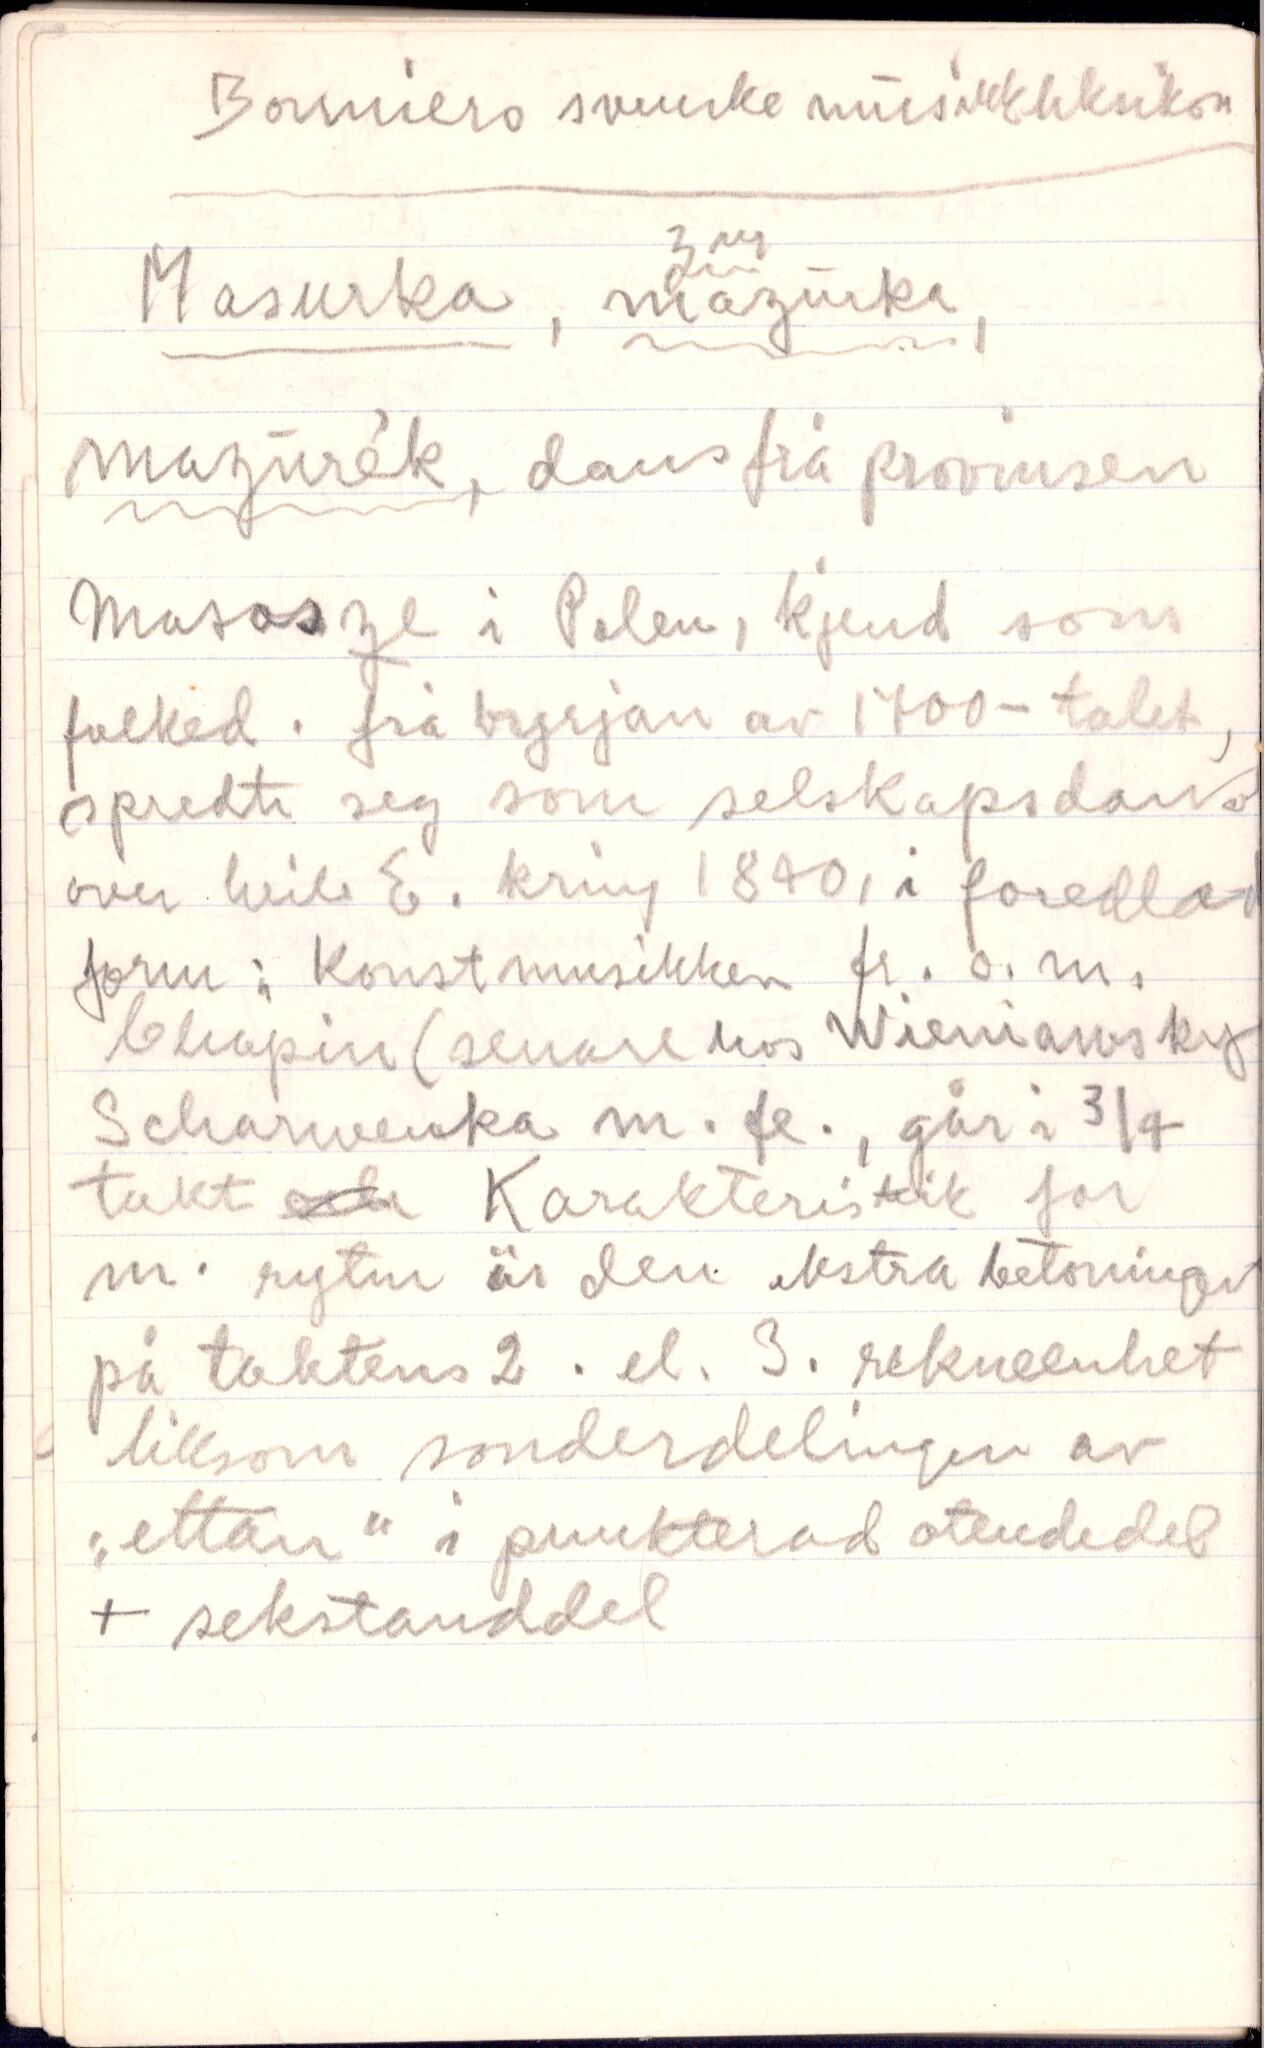 Bonniers svenske musikkleksikon
Masurka, mazurka,
mazurék, dans frå provinsen
Masosze i Polen, kjend som
folked. frå byrjan av 1700-talet,
spredte seg som selskapsdans
over heile E. kring 1840, i foredlad
form i Konstmusikken fr. o. m.
Chopin (senare hos Wieniawsky
Scharwenka m. fl., går i 3/4
takt och Karakteristik for
m. rytm är den ekstra betoningen
på taktens 2. el. 3. rekneenhet
liksom sonderdelingen av
„ettan" i punkterad ottendedel
+ sekstanddel